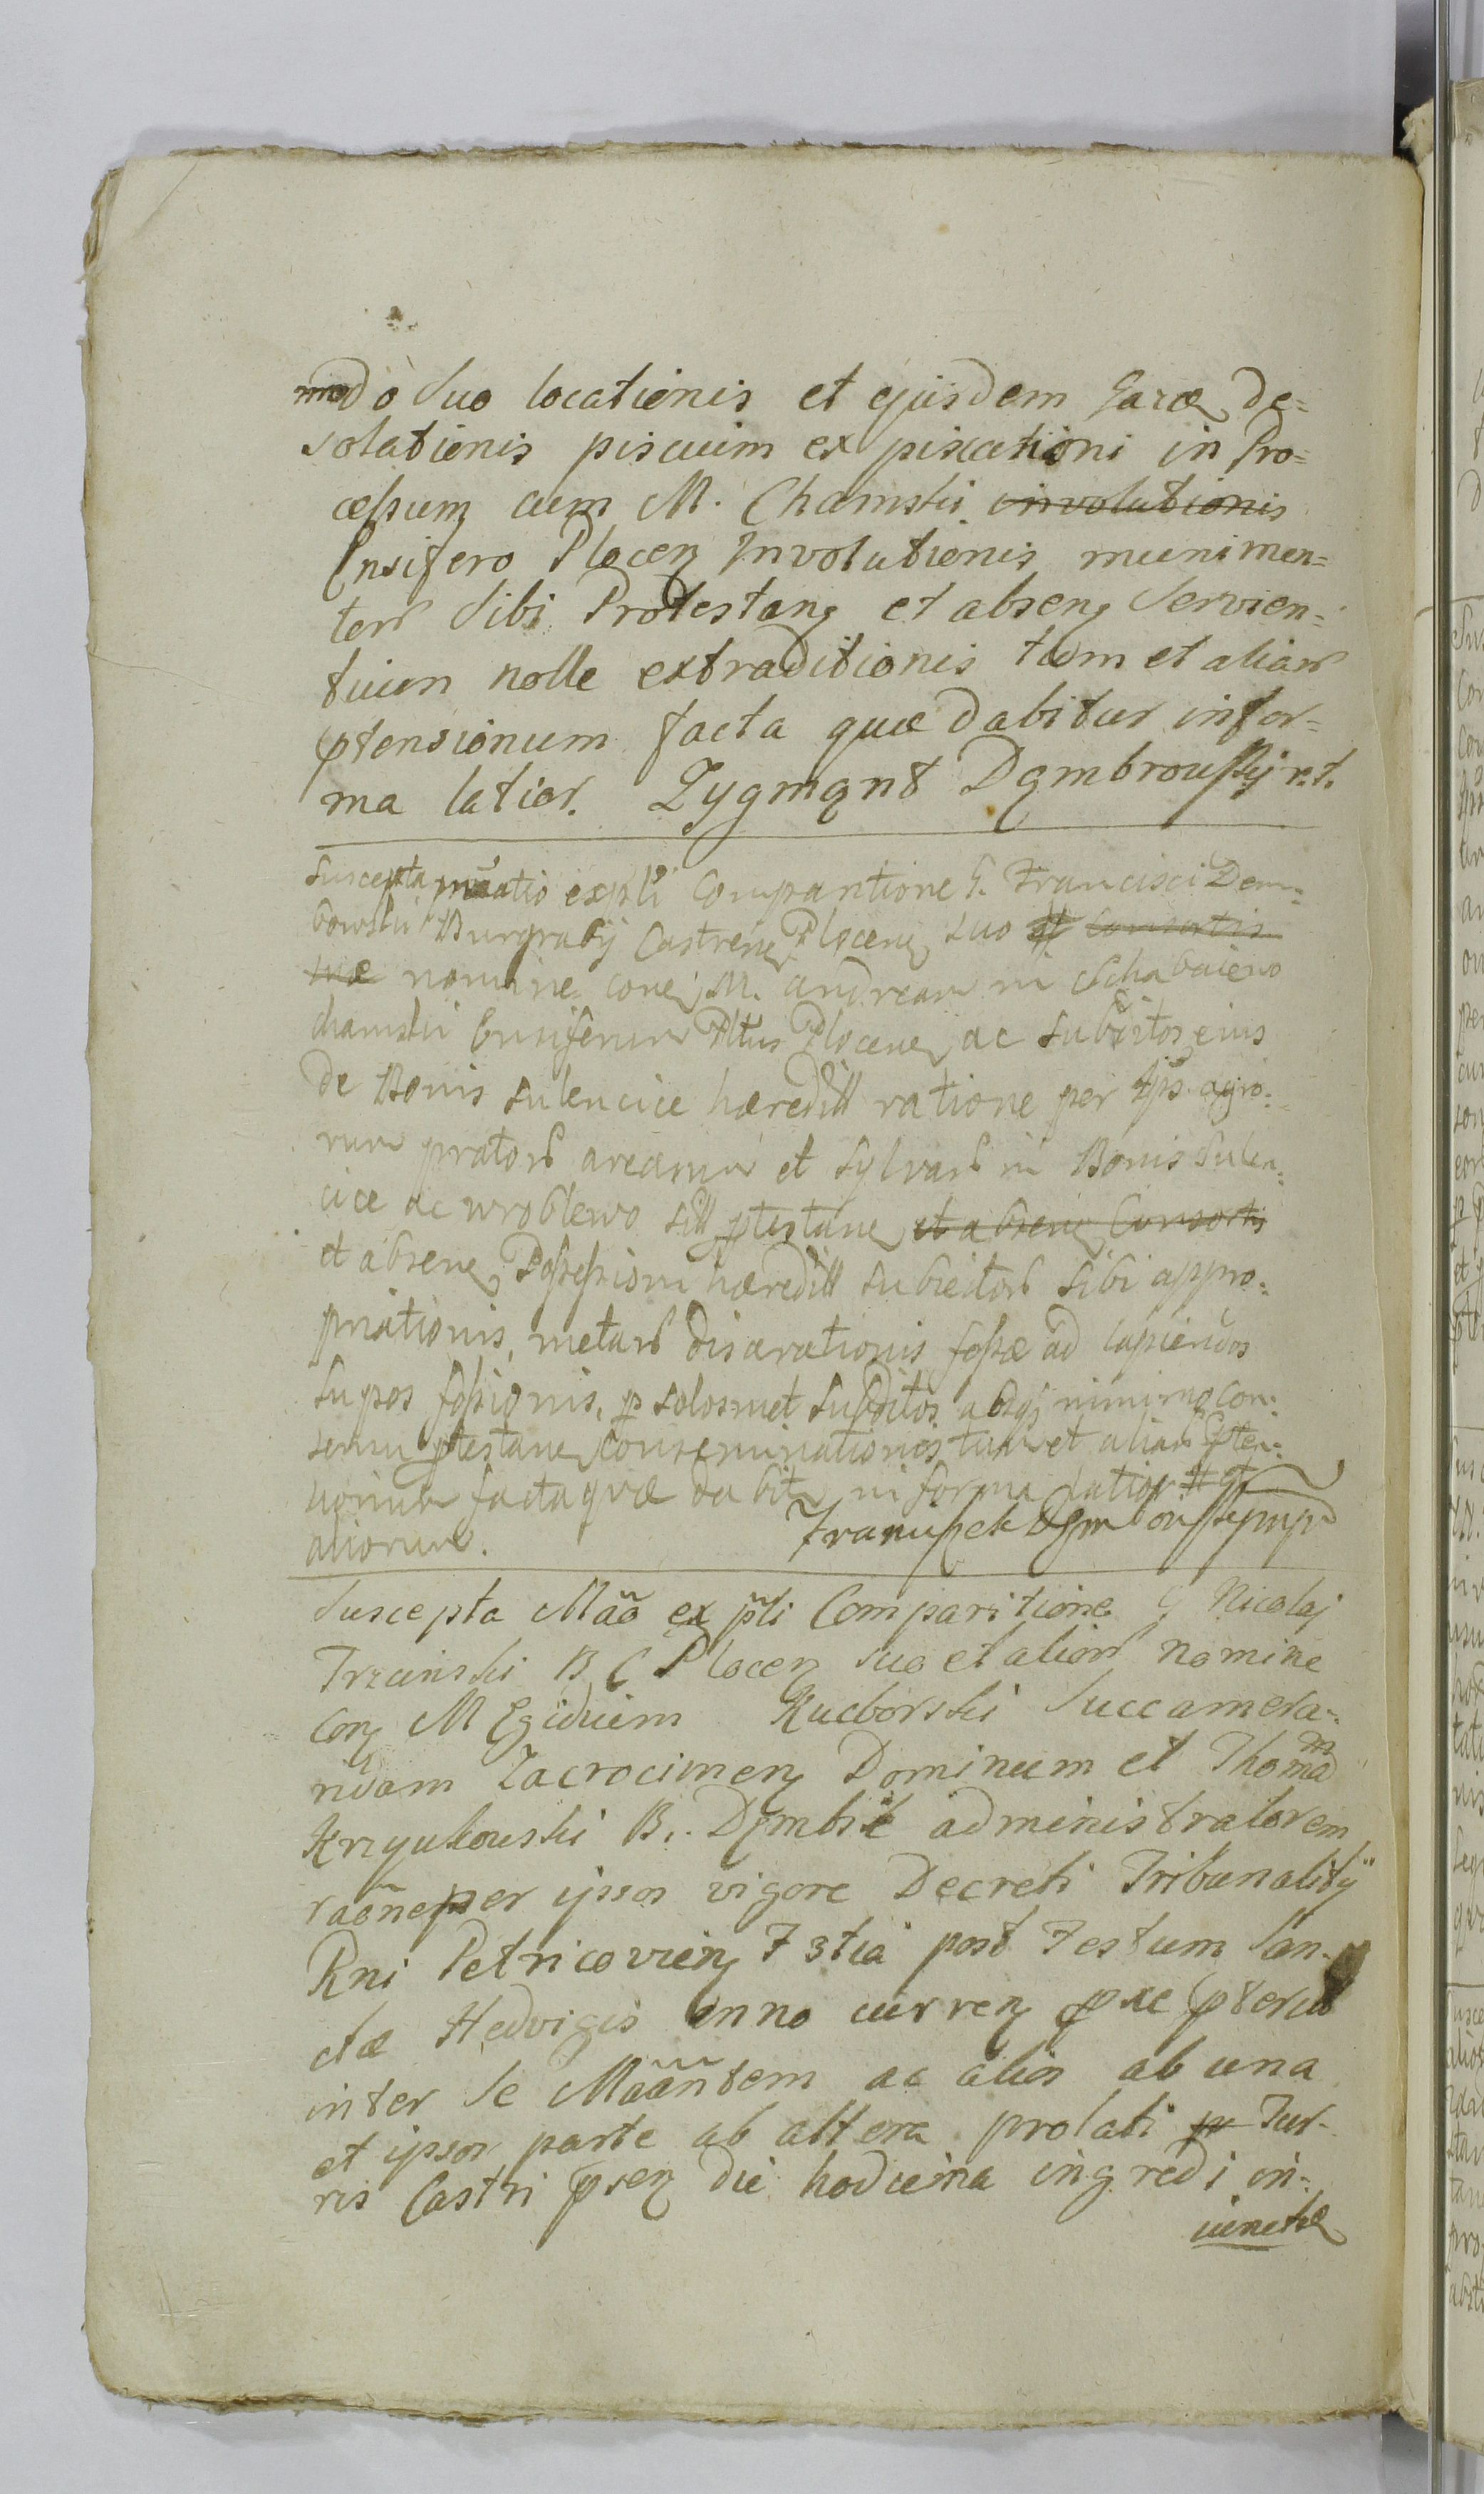 modò Suo locationis et ejusdem Garæ De=
solationis piscium ex piscationi in Pro=
cessum cum M. Chamski involutionis
Ensifero Plocen Involutionis munimen=
tor Sibi Protestan et absen Servien=
tium nolle extraditionis tum et aliar
ptensionum facta quæ dabitur in for=
ma latior. Zygmąnt Dąmbrouskij r.t.
Suscepta mãatio exp̃li Comparitione G. Francisci Dem=
bowski Burgrabÿ Castren Plocen Suo et Consortis
suæ nomine con M. Andream in Schabaiewo
Chamski Ensiferum Pltus Plocen ac subditos eius
de Bonis Sulencice hæredill ratione per ips agro=
rum prator arearum et Sylvar in Bonis Sulen=
cice ac wroblewo sill ptestan et absen Consortis
et absen Possessioni hæredill subiector sibi appro=
priationis, metar disarationis fossæ ad capiendos
lupos fossionis, p solosmet Subditos absq nimirum con=
sensu ptestan conseminationis tum et aliar pten=
tionum facta quæ dabit in forma latior et
aliorum. Franciszek Dęmbouski mp
Suscepta Mãã ex p̃li Comparitione G Nicolaj
Trzcinski B C Plocen suo et alior nomine
Con M Egidium Kucborski Succamera=
ridam Zacrocimen Dominum et Thomam
Krzyukouski B. Dęmbsk administratorem
raõne per ipsos vigore Decreti Tribunalitÿ
Rni Petricovien F 3tia post Festum San=
ctæ Hedvigis anno curren pxe pteriti
inter Se Mããntem ac alios ab una
et ipsos parte ab altera prolati pr Tur=
ris Castri psen die hodierna ingredi in=
venetæ